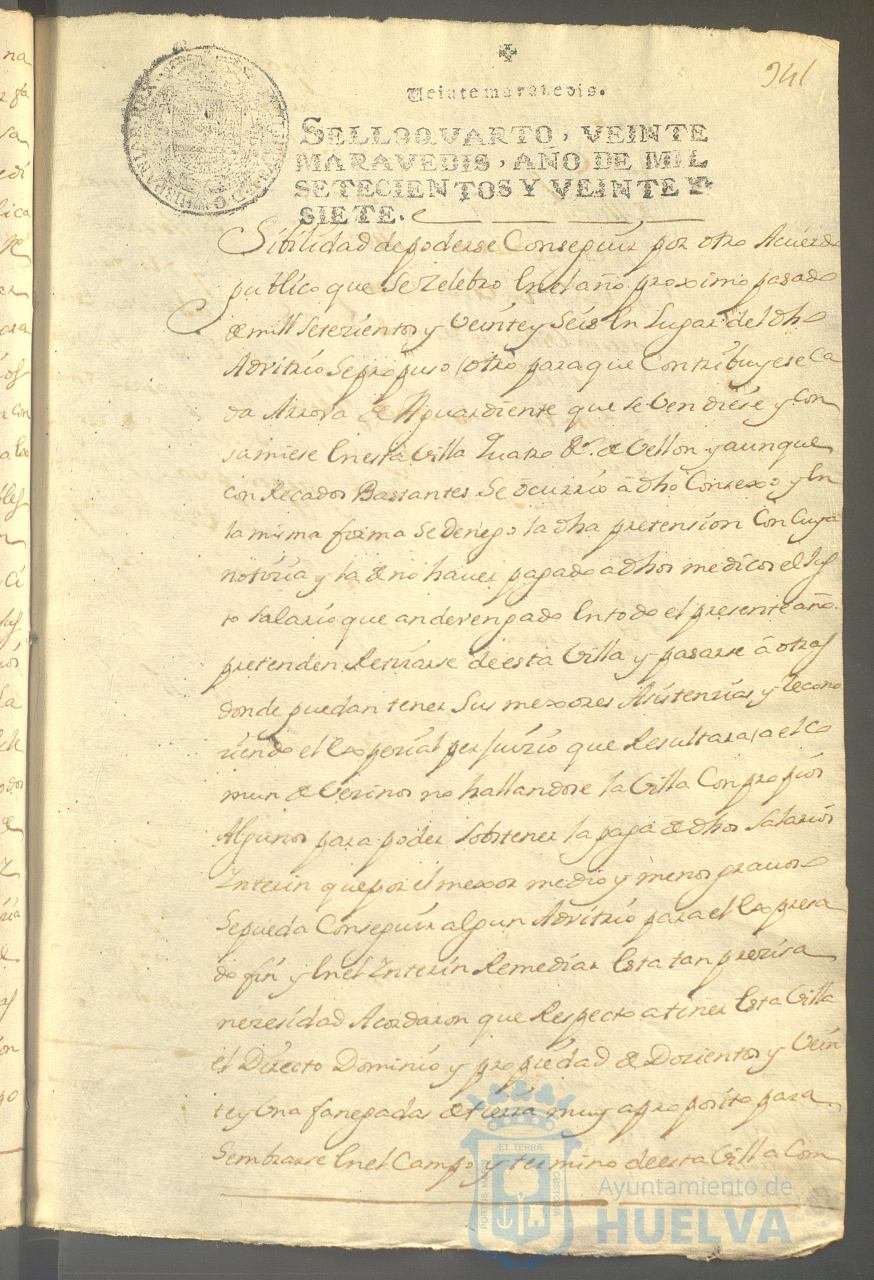 941
Veinte maravedis.
SELLO QVARTO, VEINTE
MARAVEDIS, AÑO DE MIL
SETECIENTOS Y VEINTE Y
SIETE.
Sibilidad depoderse Conseguir por otro Acuerdo
publico que se Zelebro En el año proximo pasado
de mill setezientos y Veinte y Seis En Lugar del dho
Advitrio Se propuso otro para que Contribuyese Ca
da Arrova de Aguardiente que se Vendiese y Con
sumiese En esta Villa Quatro Rs. de Vellon y aunque
con Recados Bastantes Se ocurrio â dho Consexo y En
la misma forma se denego la dha pretension Con Cuya
notizia y la de no haver pagado a dhos medicos el Jus
to salario que an devengado En todo el presente año
pretenden Retirarse de esta Villa y pasarse â otras
donde puedan tener Sus mexores Asistenzias y Recono
ziendo el Especial perjuizio que Resultara a el Co
mun de Vezinos no hallandose la Villa Con propios
Algunos para poder sobstener la paga de dhos Salarios
Interin que por el mexor medio y menos gravoso
Se pueda Conseguir algun Advitrio para el Expresa
do fin y En el Interin Remediar Esta tan preziza
nezesidad Acordaron que Respecto a tener Esta Villa
el Directo Dominio y propiedad de Dozientos y Vein
te y Una fanegadas de tierra muy a proposito para
Sembrarse En el Campo y termino de esta Villa Com
PORTUS MARIS
ET TERRÆ
CUSTODIA
Ayuntamiento de
HUELVA